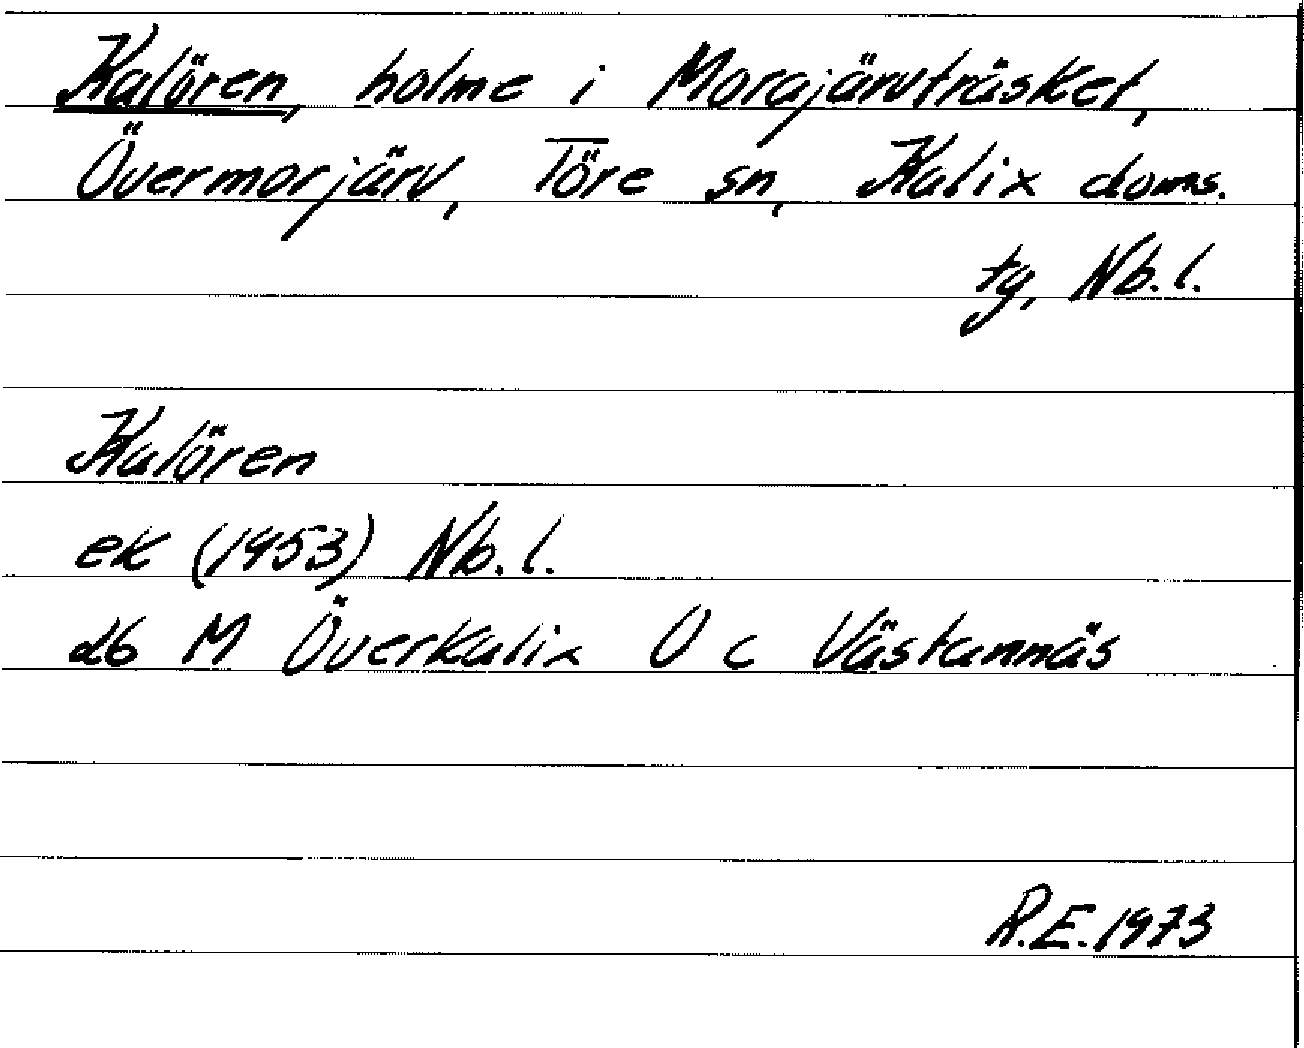 Kalören, holme i Morajärvträsket,
Övermorjärv, Töre sn, Kalix doms.
tg, Nb. l.
Kalören
ek (1953) Nb. l.
26 M Överkalix O c Västannäs
R.E. 1973